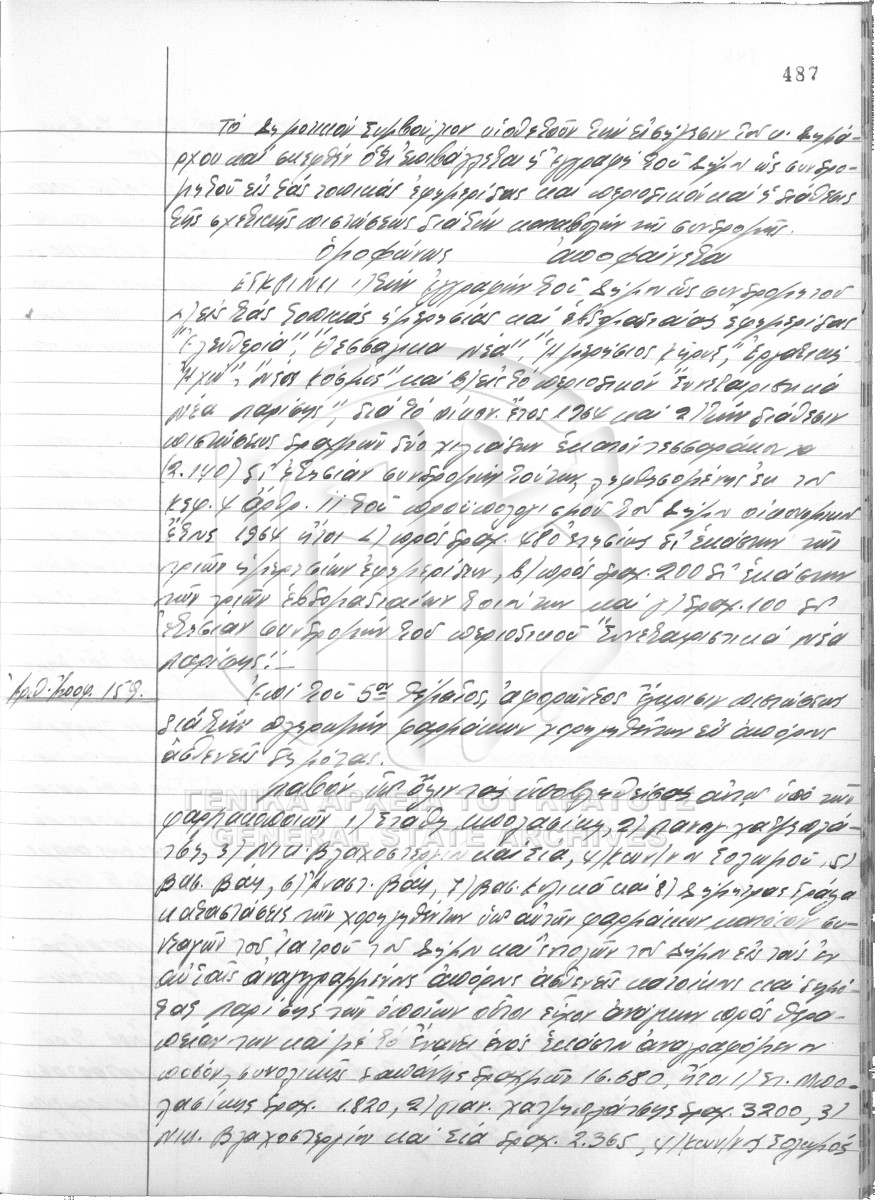 487
Τό Δημοτικόν Συμβούλιον υἱοθετοῦν τήν εἰσήγησιν τοῦ κ. Δημάρ-
χου καί σκεφθέν ὅτι ἐπιβάλλεται ἡ ἐγγραφή τοῦ Δήμου ὡς συνδρο-
μητοῦ εἰς τάς τοπικάς ἐφημερίδας καί περιοδικόν καί ἡ διάθεσις
τῆς σχετικῆς πιστώσεως διά τήν καταβολήν τῆς συνδρομῆς.
Ὁμοφώνως ἀποφαίνεται
Ἐγκρίνει 1) τήν ἐγγραφήν τοῦ Δήμου ὡς συνδρομητοῦ
Α) εἰς τάς τοπικάς ἡμερησίας καί ἑβδομαδιαίας ἐφημερίδας
"Ἐλευθερία", "Θεσσαλικά Νέα", "Ἡμερήσιος Κήρυξ", "Ἐργατική
Ἠχώ", "Νέος Κόσμος" καί Β) εἰς τό περιοδικόν "Συνεταιρικά
Νέα Λαρίσης", διά τό οἰκον. ἔτος 1964 καί 2) τήν διάθεσιν
πιστώσεως δραχμῶν δύο χιλιάδων ἑκατόν τεσσαράκοντα
(2.140) δι' ἐτησίαν συνδρομήν τούτης ληφθησομένης ἐκ τοῦ
Κεφ. 4 ἄρθρ. 11 τοῦ προϋπολογισμοῦ τοῦ Δήμου οἰκονομικοῦ
ἔτους 1964 ἤτοι Α) πρός δραχ. 480 ἐτησίως δι' ἑκάστην τῶν
τριῶν ἡμερησίων ἐφημερίδων, Β) πρός δραχ. 200 δι' ἑκάστην
τῶν τριῶν ἑβδομαδιαίων τοιούτων καί γ) δραχ. 100 δι'
ἐτησίαν συνδρομήν τοῦ περιοδικοῦ "Συνεταιριστικά Νέα
Λαρίσης".-
Ἀριθ. Ἀποφ. 159.
Ἐπί τοῦ 5ου θέματος, ἀφορῶντος ἔγκρισιν πιστώσεως
διά τήν πληρωμήν φαρμάκων χορηγηθέντων εἰς ἀπόρους
ἀσθενεῖς δημότας.
Λαβόν ὑπ' ὄψιν τάς ὑποβληθείσας αὐτῷ ὑπό τῶν
φαρμακοποιῶν 1) Σταθ. Μπολασίκη, 2) Παναγ. Χατζηπλά-
τση, 3) Νικ. Βλαχοστεργίου καί Σία, 4) Κων/νου Σολωμοῦ, 5)
Βασ. Βάη, 6) Ἀναστ. Βάη, 7) Βασ. Λυλικά καί 8) Δήμητρας
καταστάσεις τῶν χορηγηθέντων ὑπ' αὐτῶν φαρμάκων κατόπιν συ-
νταγῶν τοῦ ἰατροῦ τοῦ Δήμου καί ἐντολῶν τοῦ Δήμου εἰς τούς ἐν
αὐταῖς ἀναγραμμένους ἀπόρους ἀσθενεῖς κατοίκους καί δημό-
τας Λαρίσης τῶν ὁποίων οὗτοι εἶχον ἀνάγκην πρός θερα-
πείαν των καί μέ τό ἔναντι ἑνός ἑκάστου ἀναγραφόμενον
ποσόν, συνολικῆς δαπάνης δραχμῶν 16.680, ἤτοι 1) Στ. Μπο-
λασίκης δραχ. 1.820, 2) Παν. Χατζηπλάτσης δραχ. 3200, 3)
Νικ. Βλαχοστεργίου καί Σία δραχ. 2.365, 4) Κων/νος Σολωμός
ΓΕΝΙΚΑ ΑΡΧΕΙΑ ΤΟΥ ΚΡΑΤΟΥΣ
GENERAL STATE ARCHIVES